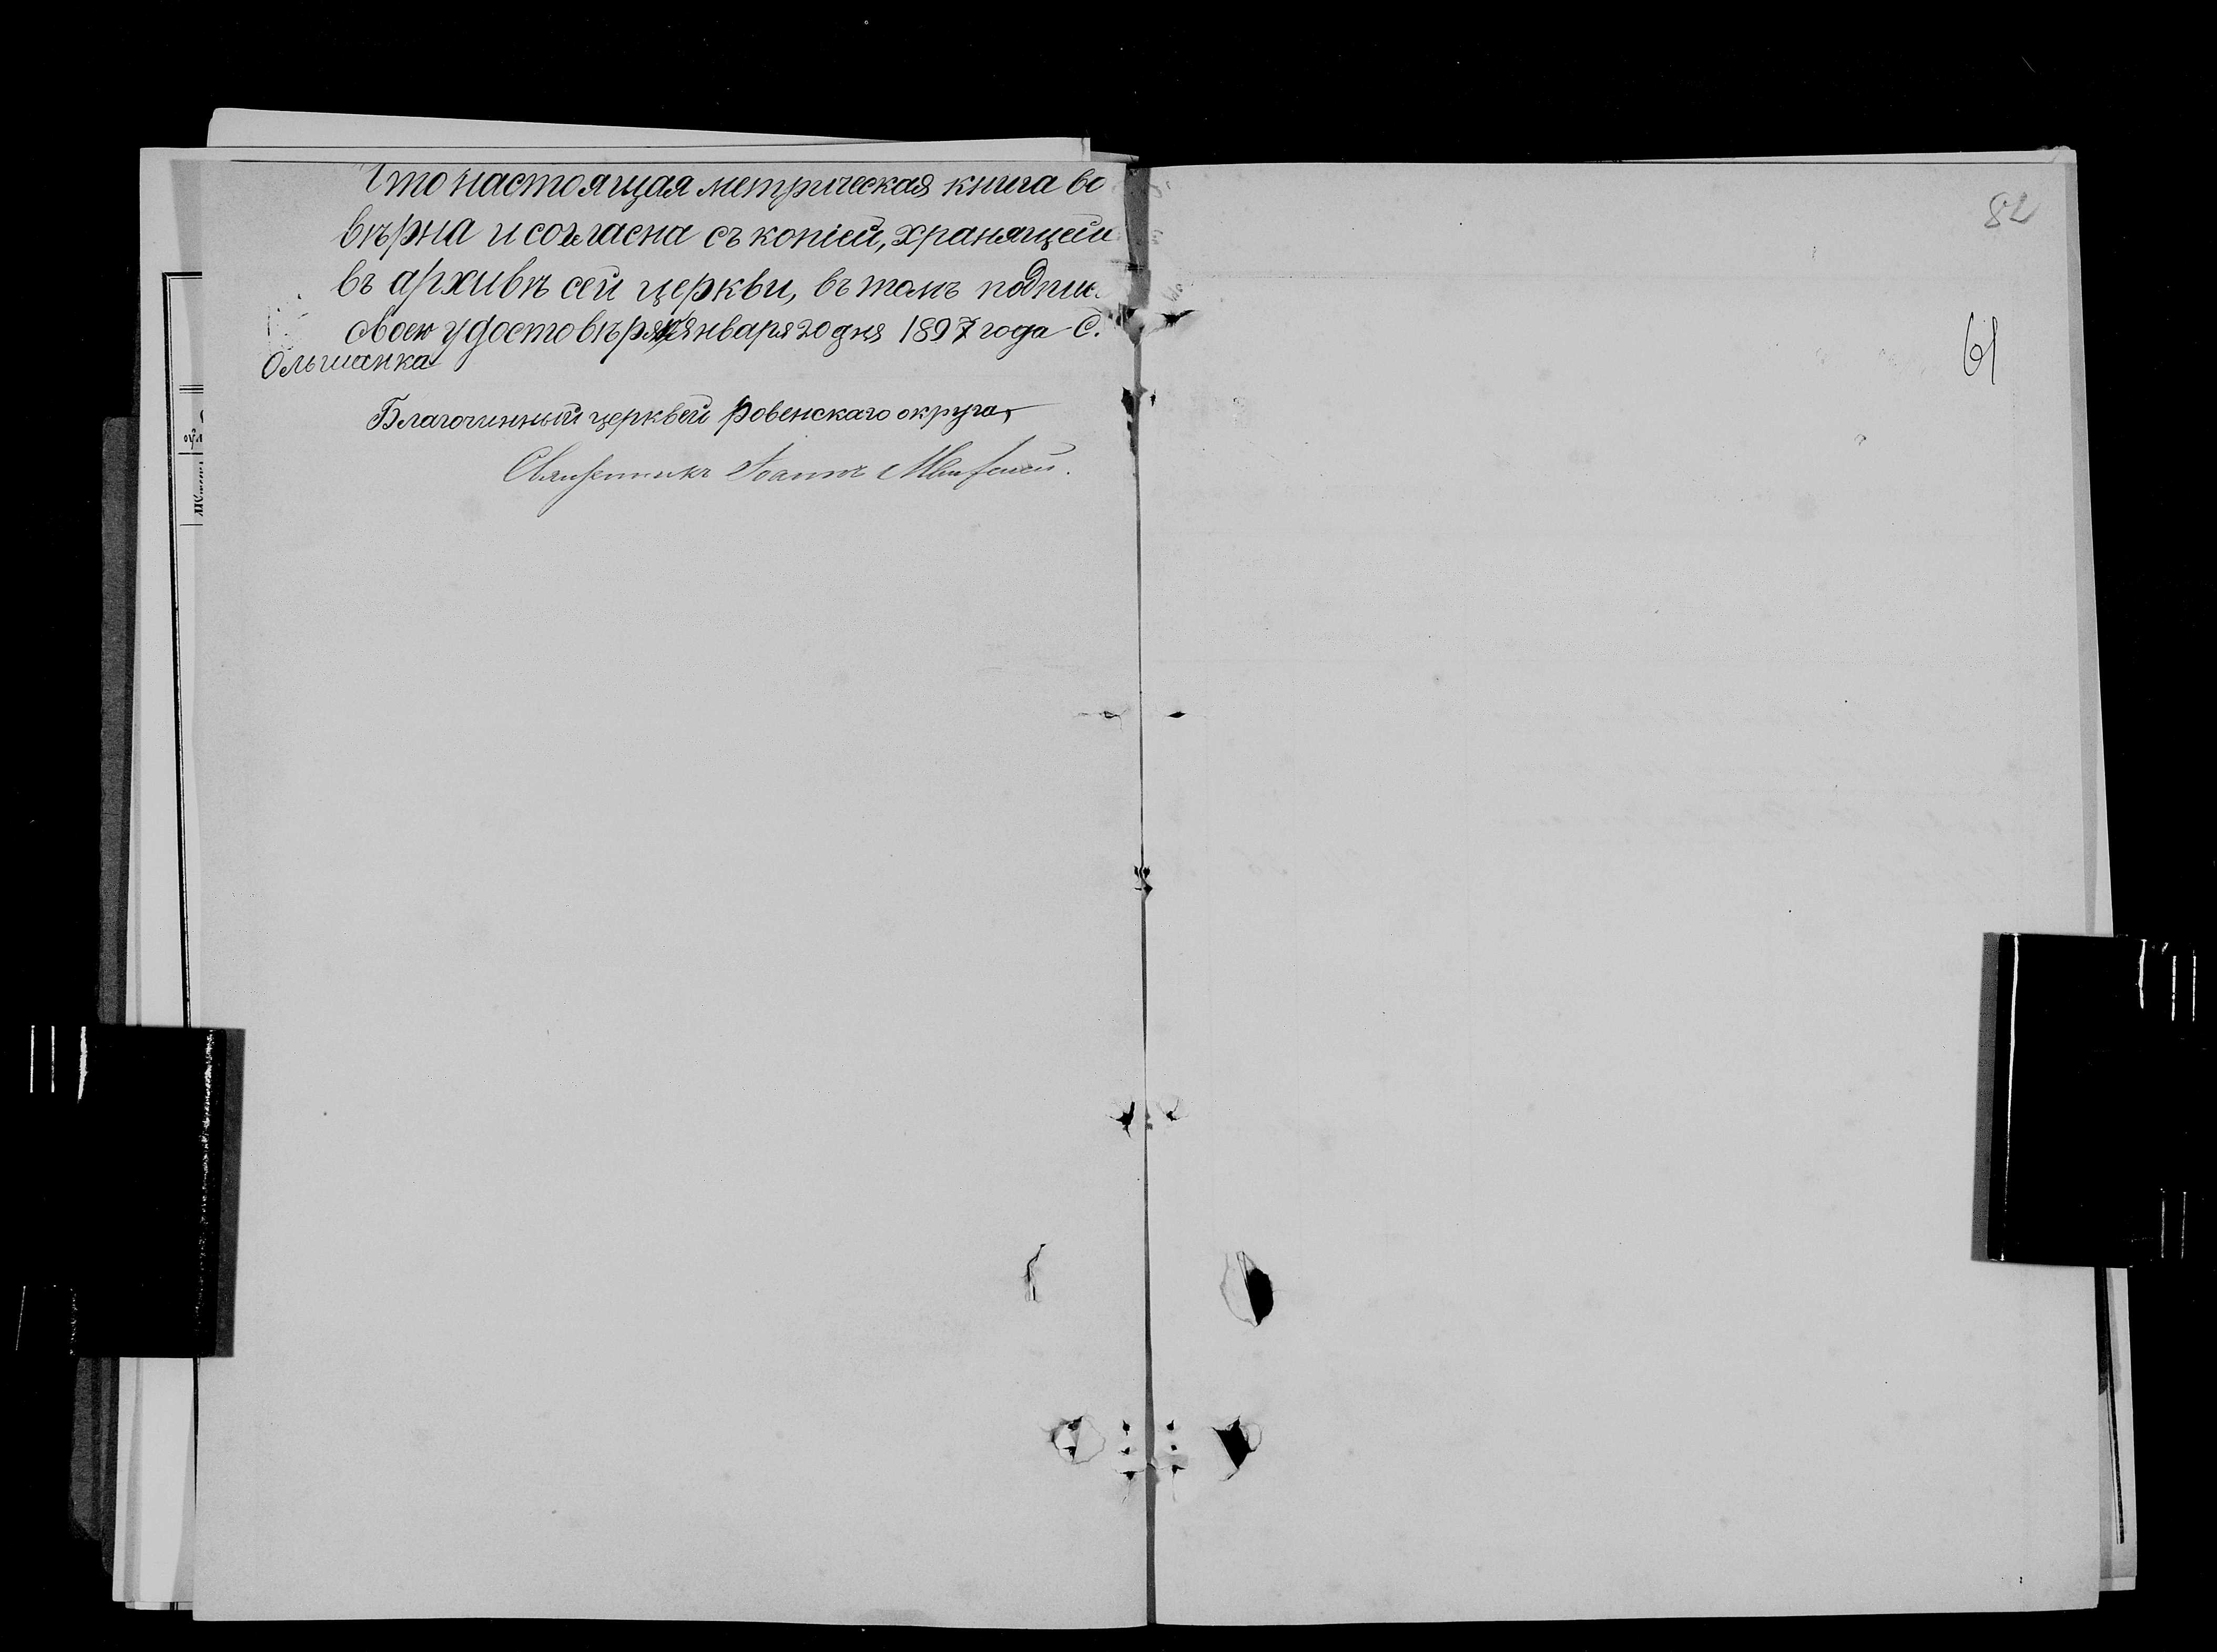 Что настоящая метрическая книга во
вѣрна и согласна съ копіей, хранящейи
въ архивѣ сей церкви, въ томъ подпи
своею удостовѣряю Января 20 дня 1897 года С.
Ольшанка
Благочинный церквей Ровенскаго округа,
Священникъ Іоаннъ
82
61